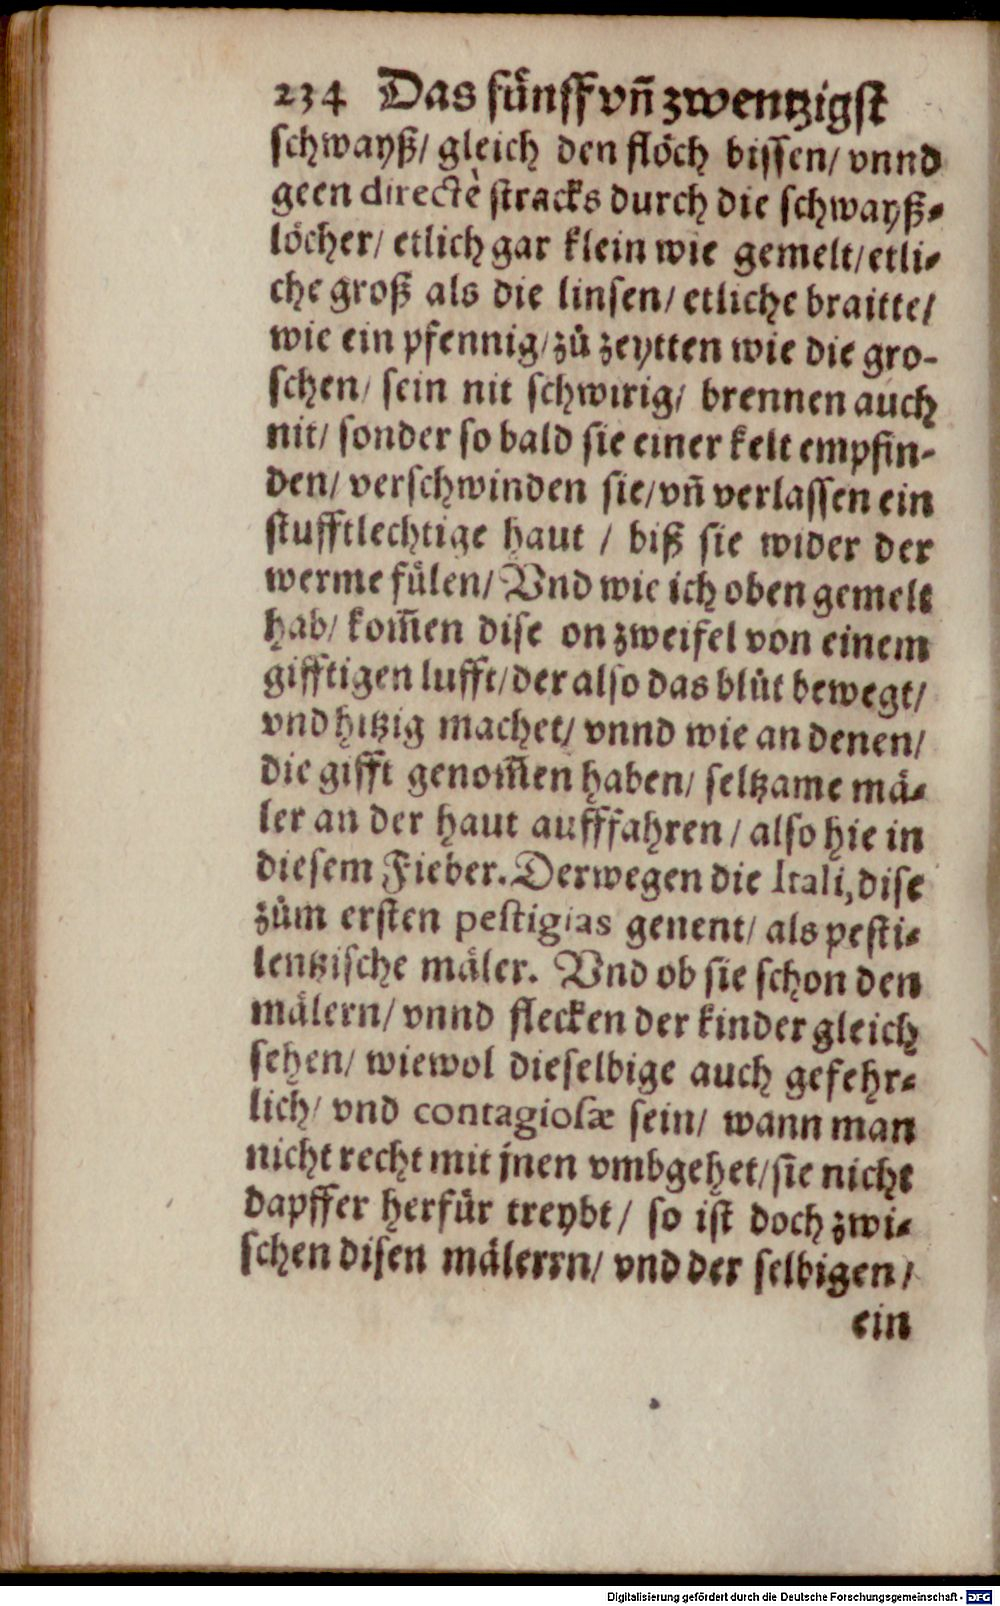 234 Das fünff vn̄ zwentzigst
schwayß/ gleich den flöch bissen/ vnnd
geen directè stracks durch die schwayß⸗
löcher/ etlich gar klein wie gemelt/ etli⸗
che groß als die linsen/ etliche braitte/
wie ein pfennig/ zů zeytten wie die gro-
schen/ sein nit schwirig/ brennen auch
nit/ sonder so bald sie einer kelt empfin-
den/ verschwinden sie/ vn̄ verlassen ein
stufftlechtige haut / biß sie wider der
werme fülen/ Vnd wie ich oben gemelt
hab/ kom̄en dise on zweifel von einem
gifftigen lufft/ der also das blůt bewegt/
vnd hitzig machet/ vnnd wie an denen/
die gifft genom̄en haben/ seltzame mä⸗
ler an der haut aufffahren / also hie in
diesem Fieber. Derwegen die Itali, dise
zům ersten pestigias genent/ als pesti⸗
lentzische mäler. Vnd ob sie schon den
mälern/ vnnd flecken der kinder gleich
sehen/ wiewol dieselbige auch gefehr⸗
lich/ vnd contagiosæ sein/ wann man
nicht recht mit jnen vmbgehet/ sie nicht
dapffer herfür treybt / so ist doch zwi⸗
schen disen mälerrn/ vnd der selbigen /
ein
Digitalisierung gefördert durch die Deutsche Forschungsgemeinschaft - DFG